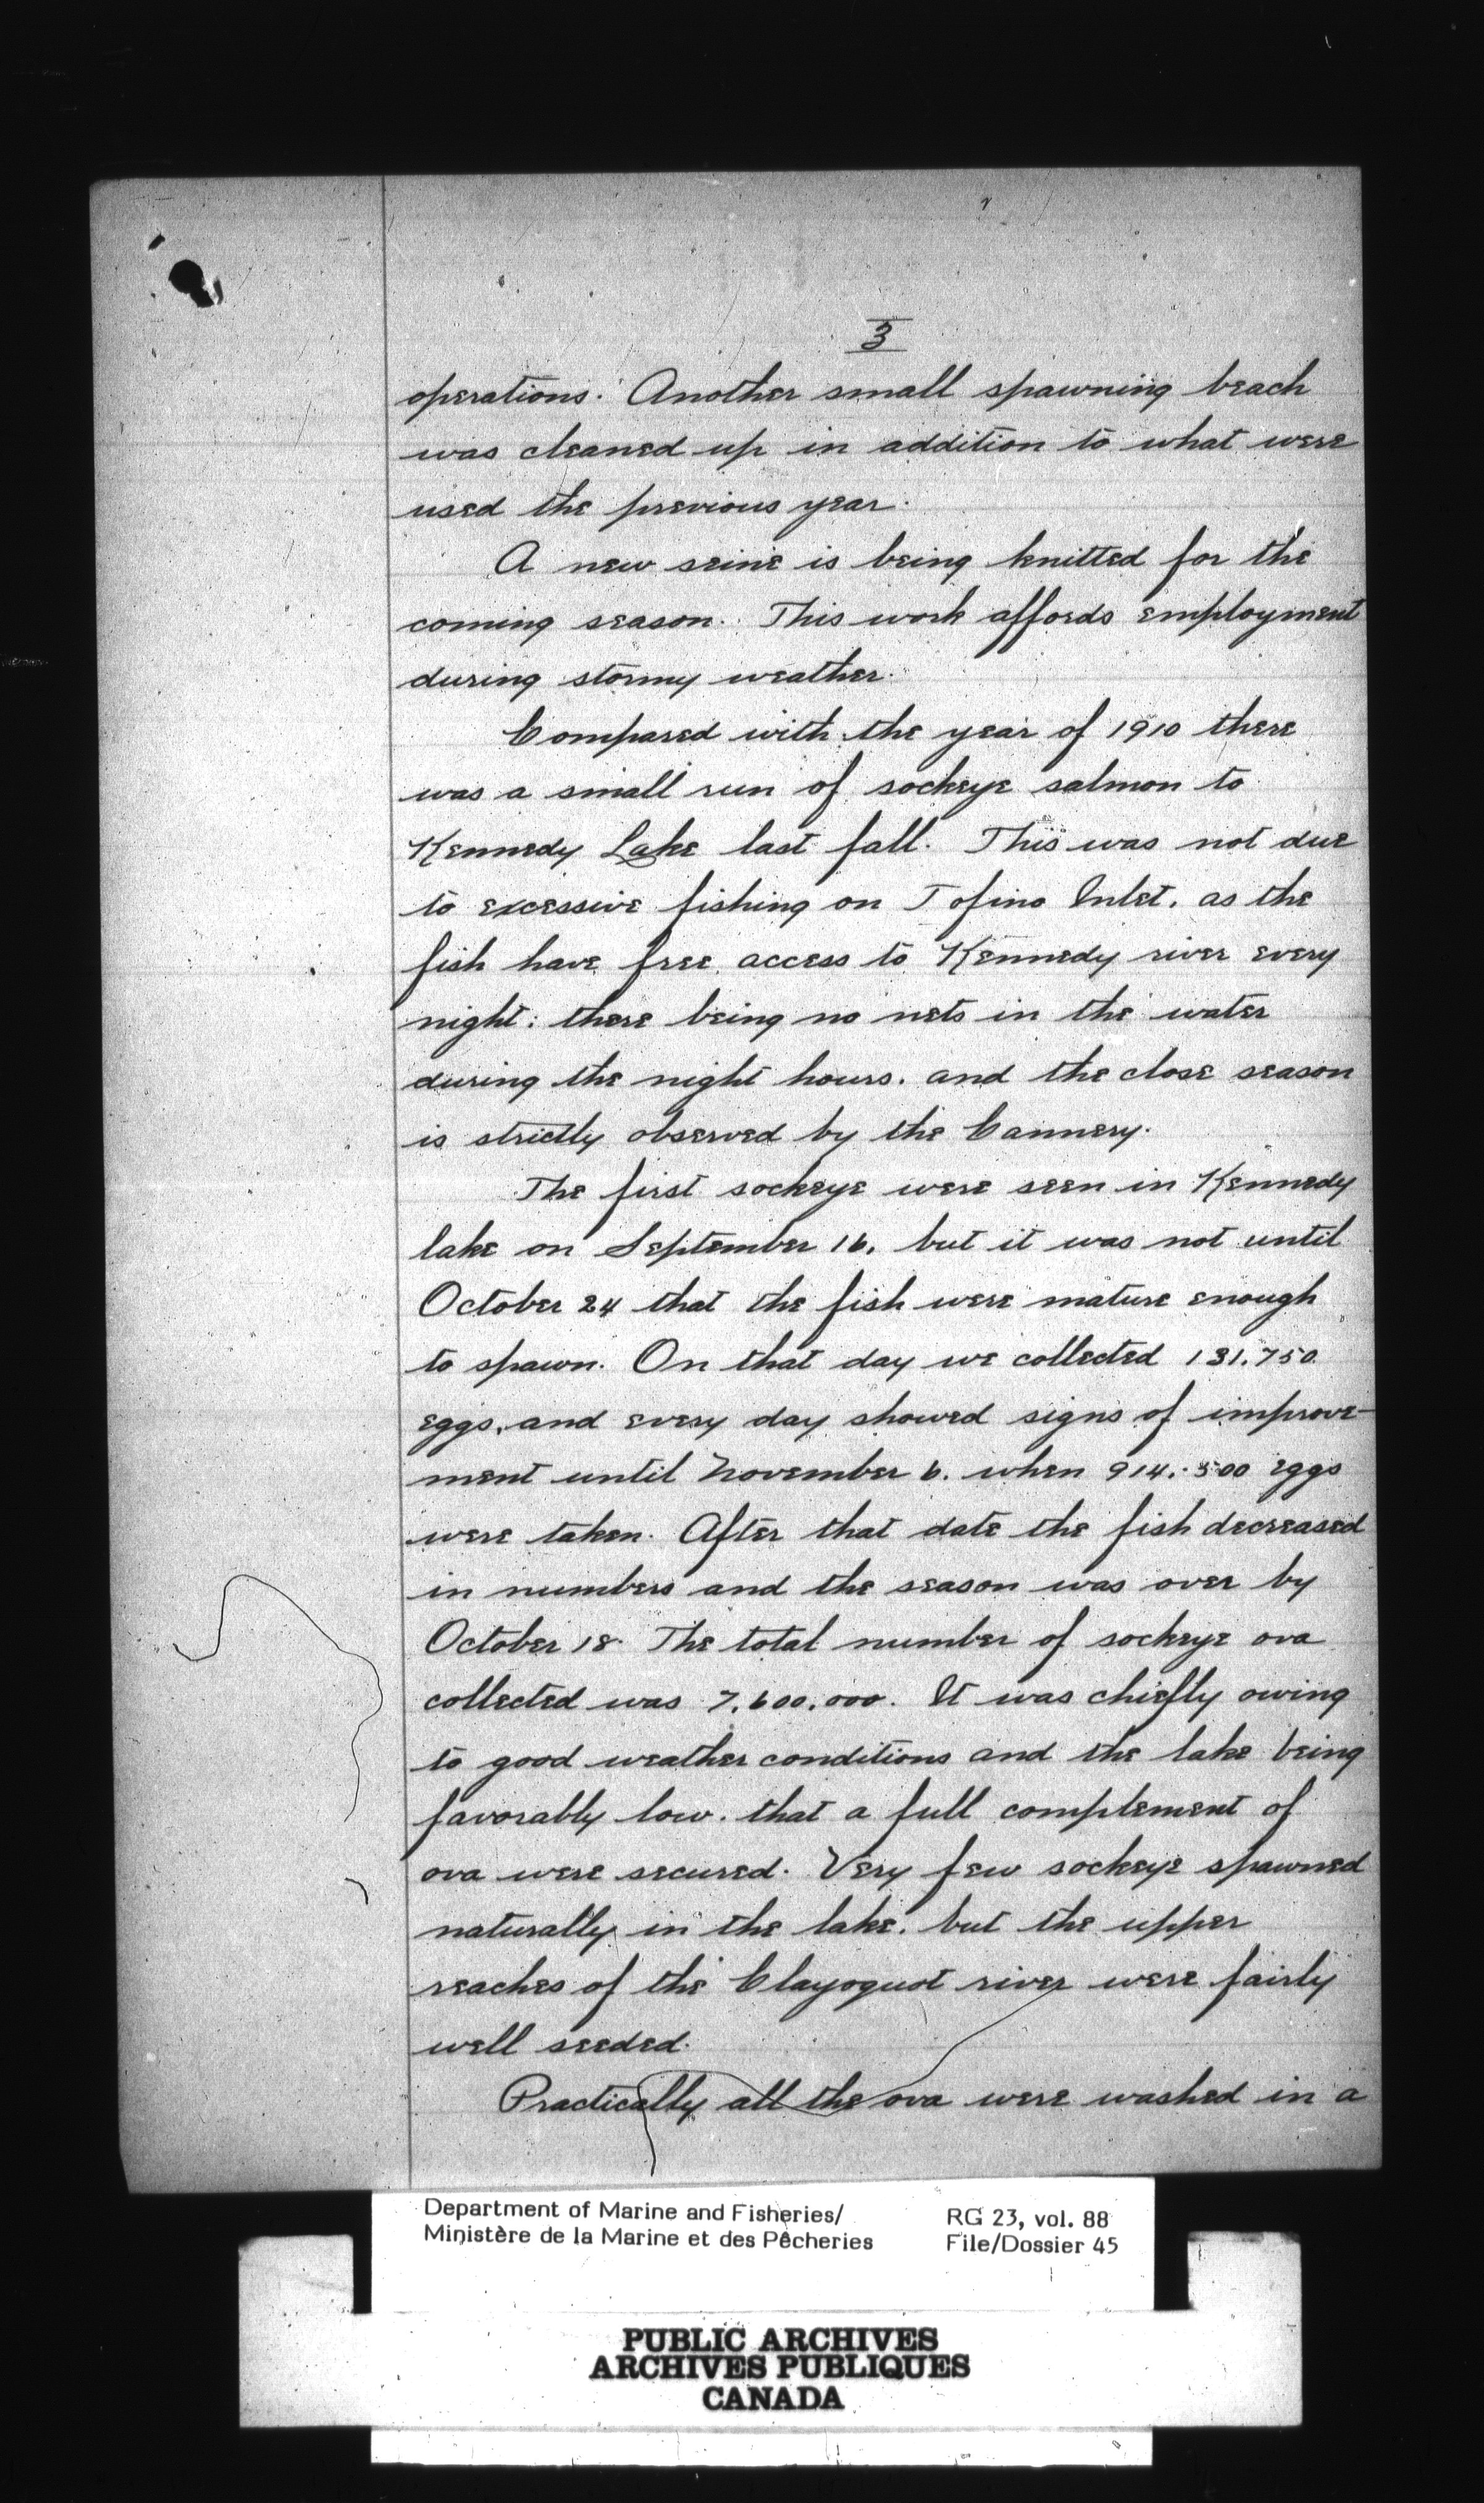 3
operations. Another small spawning beach
was cleaned up in addition to what were
used the previous year.
A new seine is being knitted for the
coming season. This work affords employment
during stormy weather.
Compared with the year of 1910 there
was a small run of sockeye salmon to
Kennedy Lake last fall. This was not due
to excessive fishing on Tofino Inlet, as the
fish have free access to Kennedy river every
night; there being no nets in the water
during the night hours, and the close season
is strictly observed by the Cannery.
The first sockeye were seen in Kennedy
lake on September 16, but it was not until
October 24 that the fish were mature enough
to spawn. On that day we collected 131,750
eggs, and every day showed signs of improve-
ment until November 6, when 914,500 eggs
were taken. After that date the fish decreased
in numbers and the season was over by
October 18. The total number of sockeye ova
collected was 7,600,000. It was chiefly owing
to good weather conditions and the lake being
favorably low, that a full complement of
ova were secured. Very few sockeye spawned
naturally in the lake, but the upper
reaches of the Clayoquot river were fairly
well seeded.
Practically all the ova were washed in a
Department of Marine and Fisheries/ RG 23, vol. 88
Ministère de la Marine et des Pêcheries File/Dossier 45
PUBLIC ARCHIVES
ARCHIVES PUBLIQUES
CANADA